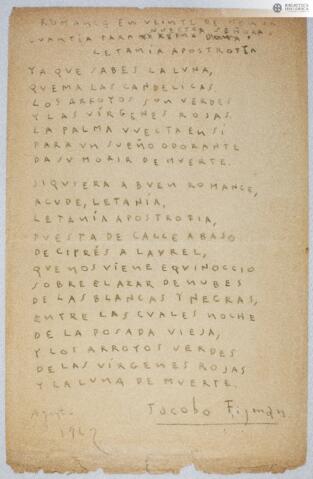 BIBLIOTECA
ROMANCE EN VEINTE DE
CUANTÍA PARA REINA
NUESTRA SEÑORA
LETANÍA APOSTROFÍA
YA QUE SABES LA LUNA,
QUEMA LAS CANDELICAS.
LOS ARROYOS SON VERDES
Y LAS VÍRGENES ROJAS.
LA PALMA VUELTA EN SÍ
PARA UN SUEÑO ODORANTE
DA SU MORIR DE MUERTE.
SIQUIERA A BUEN ROMANCE,
ACUDE, LETANÍA,
LETANÍA APOSTROFIA,
PUESTA DE CALLE ABAJO
DE CIPRÉS A LAUREL,
QUE NOS VIENE EQUINOCCIO
SOBRE EL AZAR DE NUBES
DE LAS BLANCAS Y NEGRAS,
ENTRE LAS CUALES NOCHE
DE LA POSADA VIEJA,
Y LOS ARROYOS VERDES
DE LAS VÍRGENES ROJAS
Y LA LUNA DE MUERTE.
Jacobo Fijman